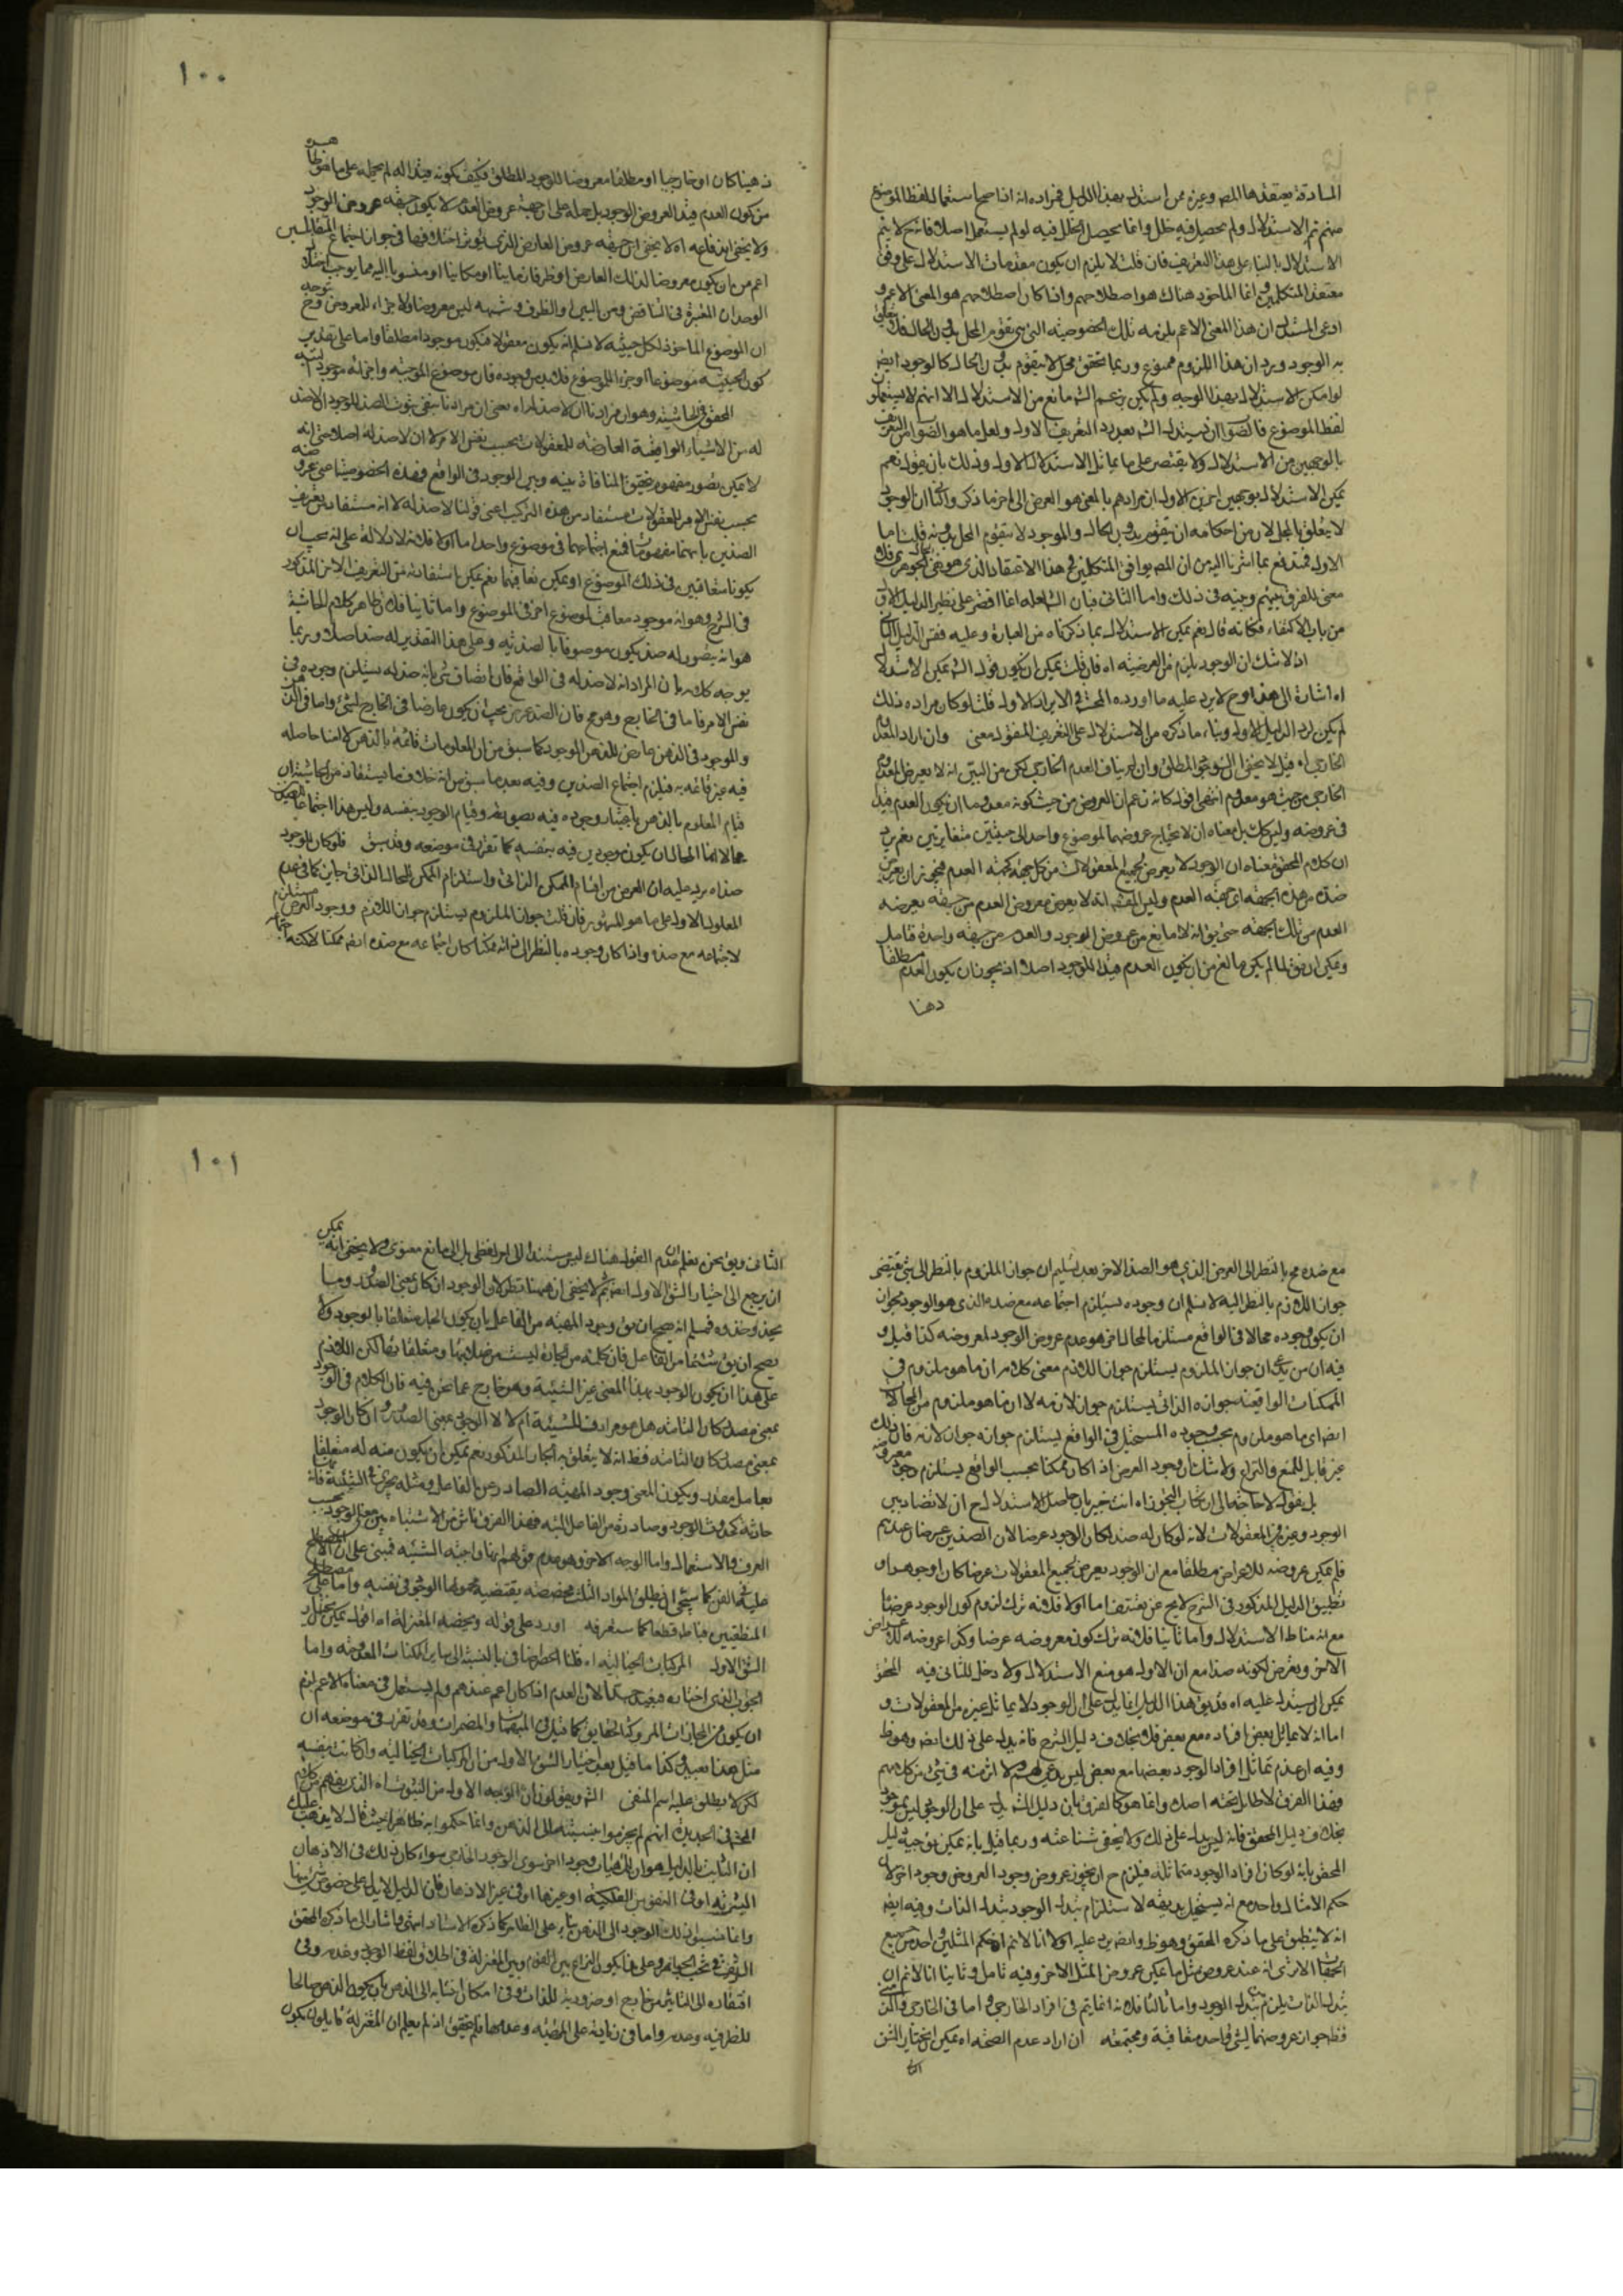 المصادقة يعتقدها المصـ وغيره ممن استدل بهذا الدليل فمراده انه اذا صح استعمال لفظ الموضوع
منهم تم الاستدلال ولم يحصل فيه خلل وانما يحصل الخلل فيه لو لم يستعمل اصلا فانه ح لا يتم
الاستدلال بالبناء على هذا التعريف فان قلت لا يلزم ان يكون مقدمات الاستدلال على وفق
معتقد المتكلمين وانما الماخوذ هناك هو اصطلاحهم واذا كان اصطلاحهم هو المعنى الاعم و
ادعى المستدل ان هذا المعنى الاعم يلزمه تلك الخصوصية التى هى تقوم المحل بدون الحال
به الوجود ويرد ان هذا اللزوم ممنوع وربما تحقق محل لا يتقوم بدون الحال كالوجود ايض
لو امكن الاستدلال بهذا الوجه ولم يكن بزعم الشـ مانع من الاستدلال الا انهم لا يستعملون
لفظ الموضوع فالصواب ان يستدل الشـ بعد رد التعريف الاول ولعل ما هو الصواب
بالوجهين من الاستدلال ولا يقتصر على ما يماثل الاستدلال الاول وذلك بان يقول نعم
يمكن الاستدلال بوجهين اخرين الاول ان مرادهم بالمعنى هو العرض الى اخر ما ذكر والثانى ان الوجود
لا يتعلق بالمحل لان من احكامه ان يتقوم بدون الحال والموجود لا يتقوم المحل بدونه قلت اما
الاول فمندفع بما اشرنا اليه من ان المصـ يوافق المتكلمين فى هذا الاعتقاد الذى هو نفى
معنى للفرق بينهم وبينه فى ذلك واما الثانى فبان الشـ لعله انما اقتصر على نظير الدليل الاول
من باب الاكتفاء فكانه قال نعم يمكن الاستدلال بما ذكرناه من العبارة وعليه فقس الدليل الثانى
اذ لا شك ان الوجود يلزم من العرضية اه فان قلت يمكن ان يكون قول الشـ يمكن الاستدلال
اه اشارة الى هذا وح لا يرد عليه ما اورده المحشى فى الايراد الاول قلت لو كان مراده ذلك
لم يكن لرد الدليل الاول وبناء ما ذكره من الاستدلال على التعريف المنقول معنى وان اراد العدم
الخارجى اه قيل لا يخفى ان الشـ وجه المطلق وان لم يناف العدم الخارجى لكن من البين انه لا يعرض المعدوم
الخارجى من حيث هو معدوم انتهى اقول كانه زعم ان العروض من حيث كونه معدوما ان يكون العدم قيدا
فى عروضه وليس كك بل معناه ان لا يحتاج عروضهما لموضوع واحد الى حيثتين متغايرتين نعم يرد
ان كلام المحقق معناه ان الوجود لا يعرض لجميع المعقولات من كل جهة كجهة العدم فيجوز ان يعرض
ضده من هذه الجهة اى جهة العدم وليس المقصـ انه لا يعرض معروض العدم من حيثية يعرضه
العدم من تلك الجهة حتى يق انه لا مانع من عروض الوجود والعدم من حيثية واحدة فتامل
ويمكن ان يق لما لم يكن مانع من ان يكون العدم قيدا للوجود اصلا اذ يجوز ان يكون العدم مطلقا
ذهنا
١٠٠
ذهنيا كان او خارجيا او مطلقا معروضا للوجود المطلق فكيف يكونه قيدا له لم يحمله على ما هو ظاهره
من كون العدم قيد العروض الوجود بل حمله على ان جهة عروض العدم لا يكون حيثية عروض الوجود
ولا يخفى اندفاعه اه لا يخفى ان حيثية عروض العارض الذى يؤثر اختلافها فى جواز اجتماع المتقابلين
اعم من ان يكون معروضا لذلك العارض او ظرفا زمانيا او مكانيا او منسوبا اليه مما يوجب اختلال
الوحدات المعتبرة فى التناقض ومن البين ان الظرف وشبهه ليس معروضا ولا جزاء للمعروض وح
ان الموضوع الماخوذ لكل حيثية لا نسلم انه يكون معقولا فيكون موجودا مطلقا واما على تقدير
كون الحيثية موضوعا او جزء الموضوع فلابد من وجوده فان موضوع الموجبة واجزائه موجود
المحقق فى الحاشية وهو ان مرادنا ان لا ضد له اه يعنى ان مرادنا بنفى ثبوت الضد للوجود ان لا ضد
له من الاشياء الواقعية العارضة للمعقولات بحسب نفس الامر لا ان لا ضد له اصلا حتى انه
لا يمكن تصور مفهوم يتحقق المنافاة بينه وبين الوجود فى الواقع فهذه الخصوصية اعنى عروضه
بحسب نفس الامر للمعقولات مستفاد من هذه التركيب اعنى قولنا لا ضد له لا انه مستفاد من تعريف
الضدين بانهما مفهومان يمتنع اجتماعهما فى موضوع واحد اما اولا فلانه لا دلالة على انه يجب ان
يكونا متعاقبين فى ذلك الموضوع او يمكن تعاقبهما نعم يمكن استفادته من التعريف الاخر المذكور
فى الشرح وهو انه موجود معاقب لموضوع اخر فى الموضوع واما ثانيا فلان ظاهر كلام الحاشية
هو انه يتصور له ضد يكون موصوفا بالضدية وعلى هذا التقدير له ضد اصلا وربما
يوجه كلامه بان المراد انه لا ضد له فى الواقع فان اتصاف شى بانه ضد له يستلزم وجوده فى
نفس الامر فاما فى الخارج وهو مح فان الضد عرض يجب ان يكون عارضا فى الخارج لشئ واما فى الذهن
والموجود فى الذهن عارض للذهن الموجود كما سبق من ان المعلومات قائمة بالذهن لا انها حاصله
فيه غير قائمه به فيلزم اجتماع الضدين وفيه بعد ما سبق من انه خلاف ما يستفاد من الحاشية ان
قيام المعلوم بالذهن باعتبار وجوده فيه بصورته وقيام الوجود بنفسه وليس هذا اجتماعا للضدين
محالا انما المحال ان يكون موجودين فيه بنفسه كما تقرر فى موضعه وقد سبق فلو كان للوجود
ضد اه يرد عليه ان العرض من اقسام الممكن الذاتى واستلزام الممكن للمحال الذاتى جايز كما فى عدم
المعلول الاول على ما هو المشهور فان قلت جواز الملزوم يستلزم جواز اللازم ووجود العرض مستلزم
لاجتماعه مع ضده واذا كان وجوده بالنظر الى ذاته ممكنا كان اجتماعه مع ضده ايض ممكنا لكنه
مع ضده مح بالنظر الى العرض الذى هو الضد الاخر بعد تسليم ان جواز الملزوم بالنظر الى شئ يقتضى
جواز اللازم بالنظر اليه لا نسلم ان وجوده يستلزم اجتماعه مع ضده الذى هو الوجود فيجوز
ان يكون وجوده محالا فى الواقع مستلزما لمحال اخر هو عدم عروض الوجود لمعروضه كذا قيل و
فيه ان من يدعى ان جواز الملزوم يستلزم جواز اللازم معنى كلامه ان ما هو ملزوم فى
الممكنات الواقعية جوازه الذاتى يستلزم جواز لازمه لا ان ما هو ملزوم من المحالات
ايض اى ما هو ملزوم بحسب وجوده المستحيل فى الواقع يستلزم جوازه جواز لازمه فان ذلك
غير قابل للمنع والنزاع ولا شك ان وجود العرض اذا كان ممكنا بحسب الواقع يستلزم وجود معروضه
بل يقول لا حاجة الى ارتكاب التجوز اه انت خبير بان حاصل الاستدلال ح ان لا تضاد بين
الوجود وغيره من المعقولات لانه لو كان له ضد لكان الوجود عرضا لان الضدين عرضان عندهم
فلم يمكن عروضه للاعراض مطلقا مع ان الوجود يعرض لجميع المعقولات عرضا كان او جوهرا و
تطبيق الدليل المذكور فى الشرح لا يخ عن تعسف اما اولا فلانه ترك لزوم كون الوجود عرضا
مع انه مناط الاستدلال واما ثانيا فلانه ترك كون معروضه عرضا وكذا عروضه للاعراض
الاخر ويعرض لكونه ضدا مع ان الاول هو منع الاستدلال ولا دخل للثانى فيه المحقق
يمكن ان يستدل عليه اه قد يق هذا الدليل انما يدل على ان الوجود لا يماثل غيره من المعقولات و
اما انه لا يماثل بعض افراده مع بعض فلا بخلاف دليل الشرح فانه يدل على ذلك ايض وهو ظ
وفيه ان عدم تماثل افراد الوجود بعضها مع بعض ليس بمدعى لهم ولا اثر منه فى شئ من كلامهم
وهذا الفرق لا طائل تحته اصلا وانما هو كالفرق بان دليل الشـ يدل على ان الوجود ليس بموجود
بخلاف دليل المحقق فانه لا يدل على ذلك ولا يخفى شناعته وربما قيل بانه يمكن توجيه دليل
المحقق بانه لو كان افراد الوجود متماثلة فيلزم ح ان يجوز عروض وجود المعروض وجود اخر لان
حكم الامثال واحد مع انه يستحيل بديهة لاستلزام تبدل الوجود تبدل الذات وفيه ايض
انه لا ينطبق على ما ذكره المحقق وهو ظ وايض يرد عليه اولا انا لا نم ان حكم المثلين واحد من جميع
الجهات الا ترى انه عند عروض مثل ما يمكن عروض المثل الاخر وفيه تامل وثانيا انا لا نم ان
تبدل الذات يلزم تبدل الوجود واما ثالثا فلانه انما يتم فى افراد الخارجى واما فى الخارجى والذهنى
فظ جواز عروضهما لشئ واحد متعاقبة ومجتمعة ان اراد عدم الصحة اه يمكن اختيار الشق
١٠١
الثانى ويق نحن نعلم ان عدم القول هناك ليس مستندا الى امر لفظى بل الى مانع معنوى ولا يخفى انه يمكن
ان يرجع الى اختيار الشق الاول ايض ثم لا يخفى ان ههنا نظرا لان الوجود ان كان بمعنى الصدور وما
يحذو حذوه فمسلم انه صحيح ان يق وجود المهية من الفاعل بان يكون الجار متعلقا بالوجود ولا
يصح ان يق شيئها من الفاعل فان كلمة من الجارة ليست من صلاتها ومتعلقاتها لكن اللازم
على هذا ان يكون الوجود بهذا المعنى غير الشيئية وهو خارج عما نحن فيه فان الكلام فى الوجود
بمعنى مصدر كان التامة هل هو مرادف للشيئية ام لا لا الوجود بمعنى الصدور وان كان الوجود
بمعنى مصدر كان التامة فظ انه لا يتعلق به الجار المذكور نعم يمكن ان يكون منه له متعلقا
بعامل مقدر ويكون المعنى وجود المهية الصادر من الفاعل ومثله يجرى فى الشيئية فانه
حادثة كحدوث الوجود وصادرة من الفاعل البتة فهذا الفرق ناش من الاشتباه بين معنى الوجود بحسب
العرف والاستعمال واما الوجه الاخر وهو عدم قولهم انها واجبة الشيئية فمبنى على ان الاصطلاح
عليه فى الفن كما سيجئ ان يطلق المواد الثلث مخصصة يقتضيه محمولها الوجود فى نفسه واما على مصطلح
المنطقيين فباطل قطعا كما ستعرفه اورد على قوله ويخصه المعتزلة اه اقول يمكن اختيار
الشق الاول المركبات الخيالية اه قلنا الحصر اضافى بالنسبة الى ساير الممكنات المعدومة واما
الجواب الذى اختاره فبعيد جدا لان العدم اذا كان اعم عندهم ولم يستعمل فى معناه الاعم لزم
ان يكون من المجازات المتروكة الحقايق كما قيل فى المبهمات والمضمرات وقد تقرر فى موضعه ان
مثل هذا بعيد كذا ما قيل بعد اختيار الشق الاول من ان المركبات الخيالية وان كانت منفية
لكن لا يطلق عليه اسم المنفى الشـ ويقولون ان الوجه الاول من الثبوت اه الذى يفهم من كلام
المحشى فى الجديدة انهم لم يجزموا بنسبته الى الذهن وانما حكموا به ظاهرا حيث قال لا يذهب عليك
ان الثابت بالدليل هو ان للاشياء وجودا اخر سوى الوجود الخارجى سواء كان ذلك فى الاذهان
البشرية او فى النفوس الفلكية او غيرها او فى غير الاذهان فان الدليل لا يدل على خصوص شئ منها
وانما ينسبون ذلك الوجود الى الذهن بناء على الظاهر كما ذكره الاستاد انتهى واشار الى ما ذكره المحقق
الشريف فى بحث الجواهر وعلى هذا يكون النزاع بين القوم وبين المعتزلة فى اطلاق لفظ الوجود وعدمه وفى
افتقاره الى التاثير من خارج او ضرورية للذات وفى امكان انتسابه الى الذهن بان يكون الذهن صالحا
للظرفية وعدمه واما فى زيادته على المهية وعدمها فلم يتحقق اذ لم يعلم ان المعتزلة قايلون بكون